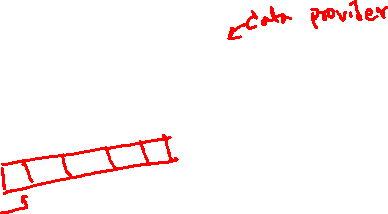 data provider